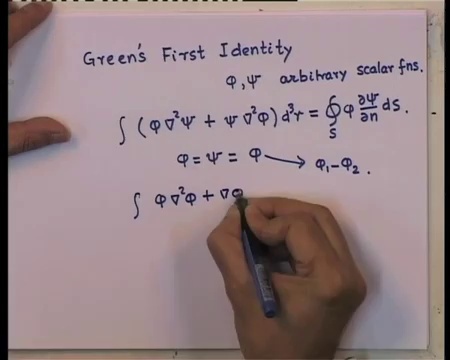 Green's First Identity
φ, ψ arbitrary scalar fns.
∫ (φ∇²ψ + ψ∇²φ) d³r = ∮_S φ ∂ψ/∂n dS.
φ = ψ = φ ⟶ φ₁ − φ₂.
∫ φ∇²φ + ∇φ